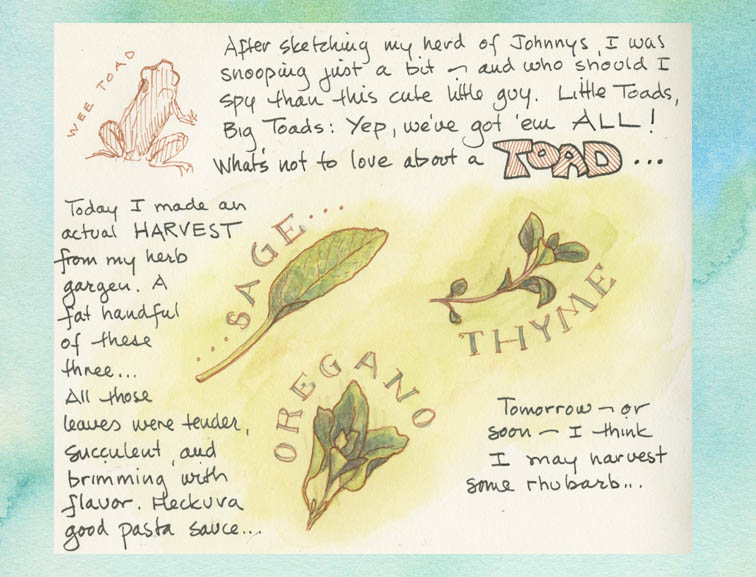 WEE TOAD
After sketching my herd of Johnnys, I was
snooping just a bit ~ and who should I
spy than this cute little guy. Little Toads,
Big Toads: Yep, we've got 'em ALL!
What's not to love about a TOAD...
Today I made an
actual HARVEST
from my herb
gargen. A
fat handful
of these
three...
All those
leaves were tender,
succulent, and
brimming with
flavor. Heckuva
good pasta sauce...
...SAGE...
THYME
OREGANO
Tomorrow ~ or
soon ~ I think
I may harvest
some rhubarb...